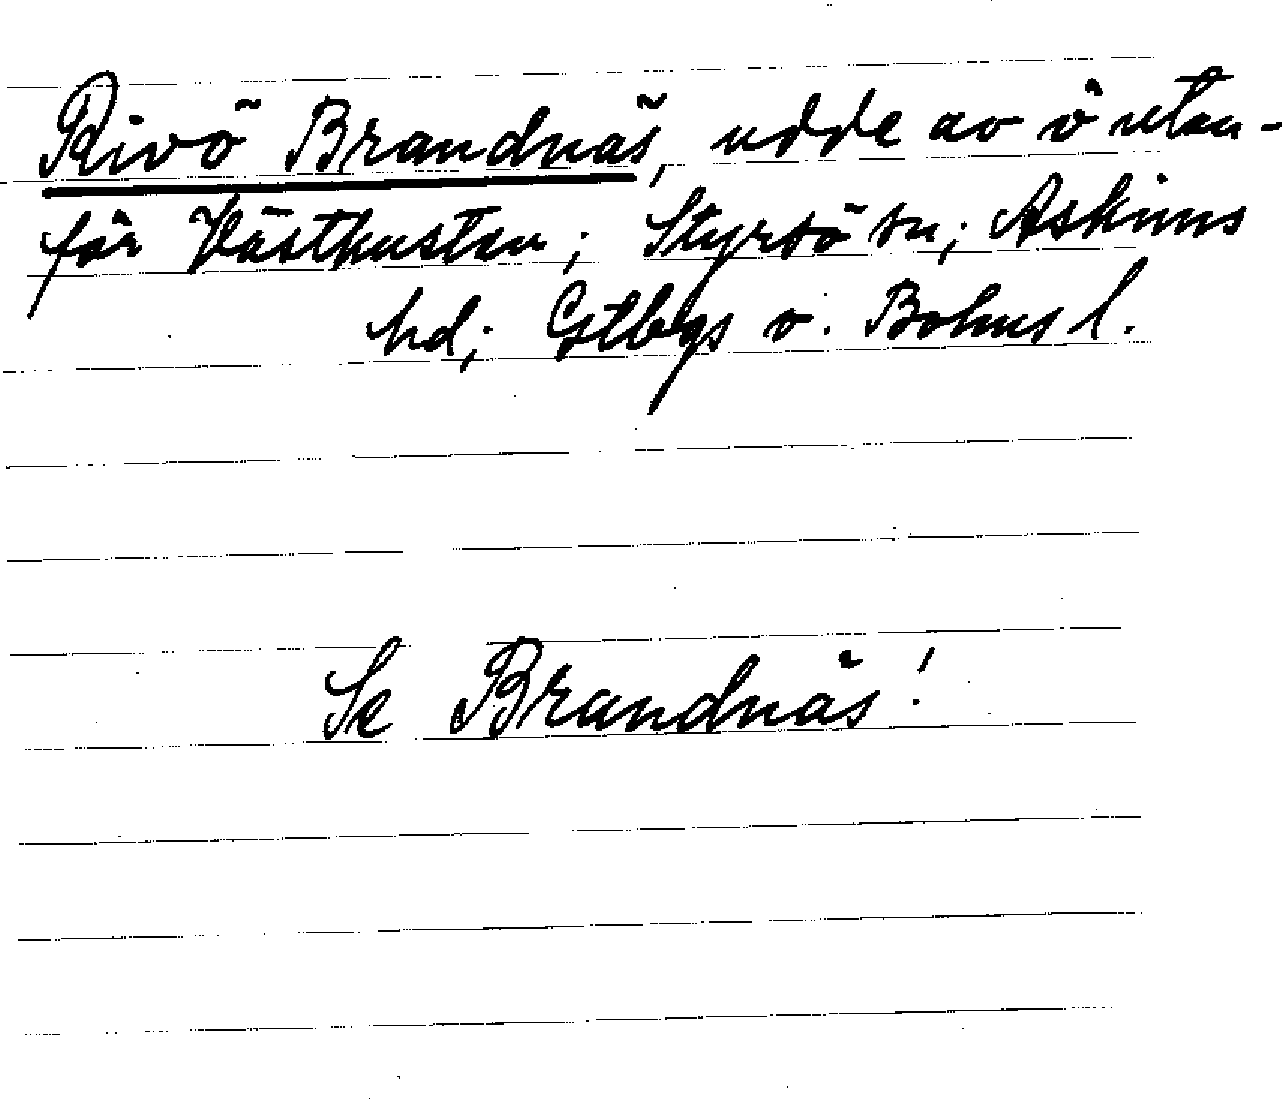 Rivö Brandnäs, udde av ö utan-
för Västkusten; Styrsö sn; Askims
hd; Gtbgs o. Bohus l.
Se Brandnäs!